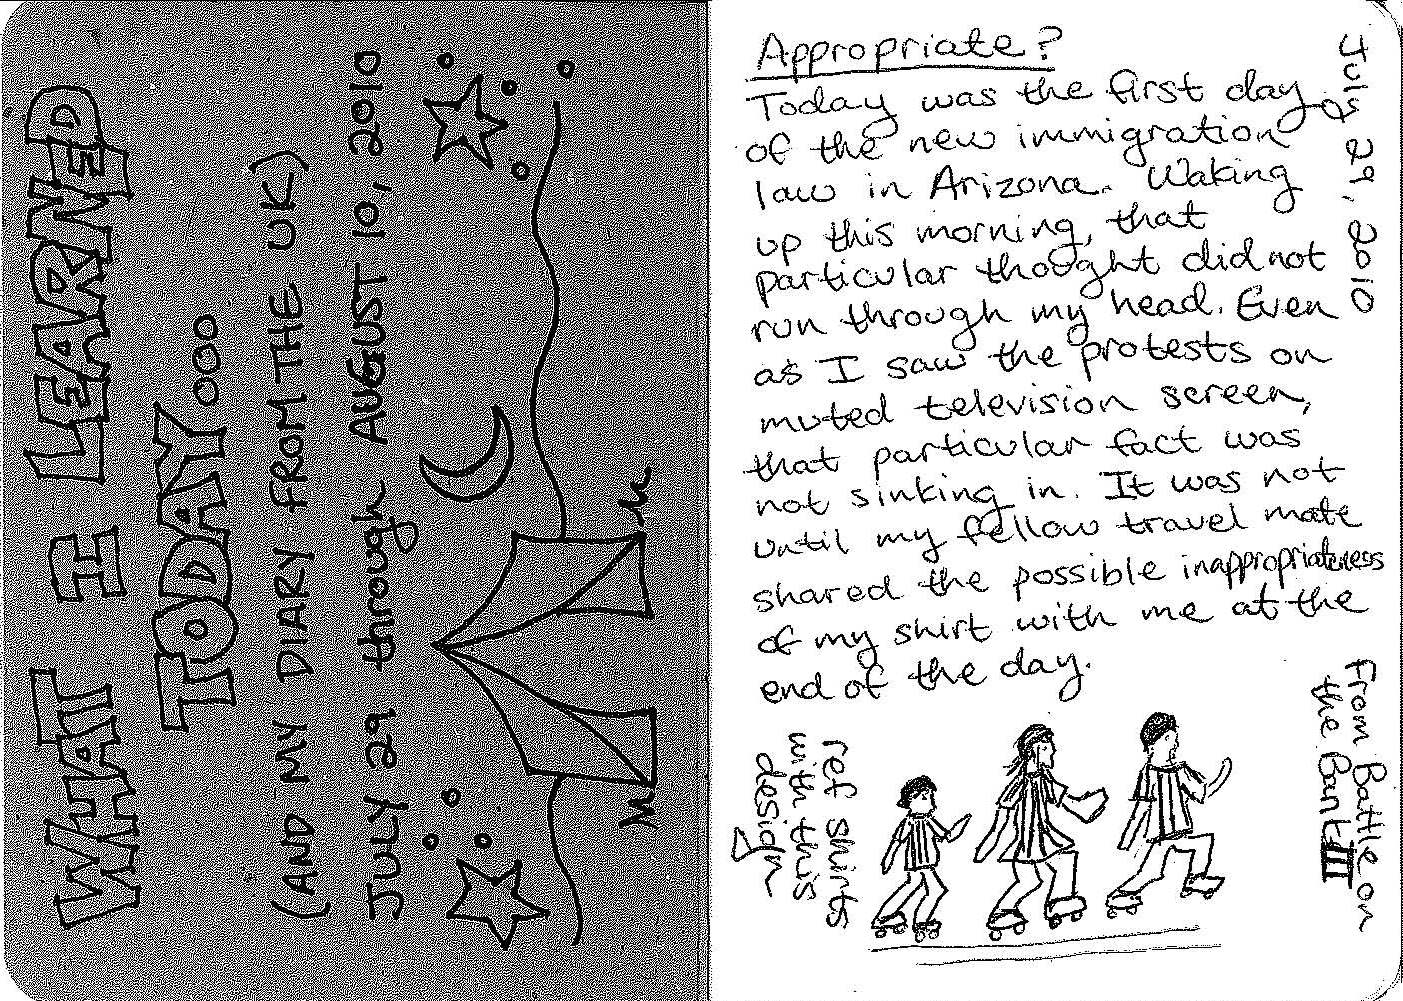 WHAT I LEARNED
TODAY ooo
(AND MY DIARY FROM THE UK)
JULY 29 through AUGUST 10, 2010
Appropriate?
Today was the first day
of the new immigration
law in Arizona. Waking
up this morning, that
particular thought did not
run through my head. Even
as I saw the protests on
muted television screen,
that particular fact was
not sinking in. It was not
until my fellow travel mate
shared the possible inappropriateness
of my shirt with me at the
end of the day.
July 29, 2010
ref shirts
with this
design
From Battle on
the Bank III